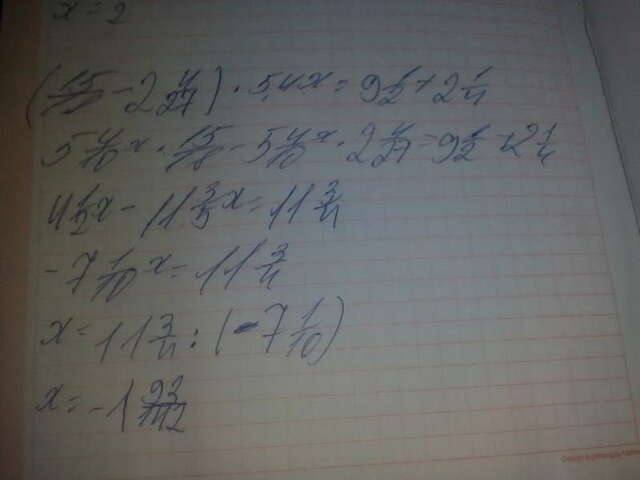 x = 2
(15/18 - 2 4/27) · 5,4x = 9 1/2 + 2 1/4
5 4/10 x · 15/18 - 5 4/10 x · 2 4/27 = 9 1/2 + 2 1/4
4 1/2 x - 11 3/5 x = 11 3/4
- 7 1/10 x = 11 3/4
x = 11 3/4 : (- 7 1/10)
x = - 1 93/142